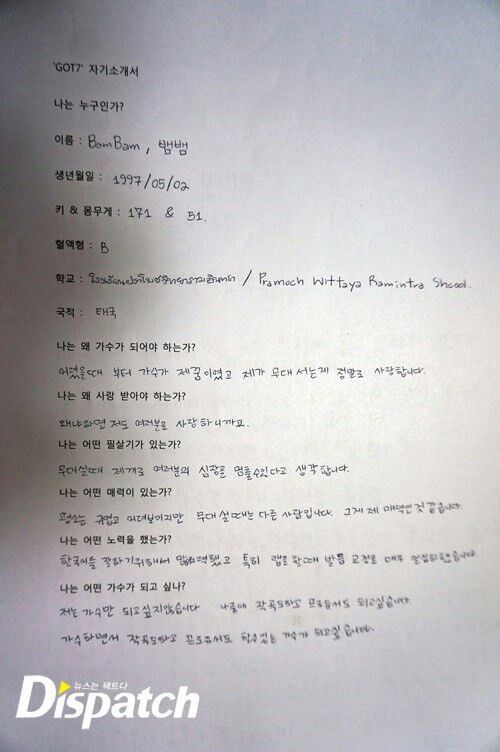 'GOT7' 자기소개서
나는 누구인가?
이름 : BamBam, 뱀뱀
생년월일 : 1997/05/02
키 & 몸무게 : 171 & 51.
혈액형 : B
학교 : / Pramoch Wittaya Ramintra Shcool.
국적 : 태국
나는 왜 가수가 되어야 하는가?
어렸을때 부터 가수가 제꿈이였고 제가 무대서는게 정말로 사랑합니다.
나는 왜 사랑 받아야 하는가?
왜냐하면 저도 여러분을 사랑하니까요.
나는 어떤 필살기가 있는가?
무대설때 제개로 여러분의 심장을 멈출수있다고 생각합니다.
나는 어떤 매력이 있는가?
평소는 귀엽고 어려보이지만 무대 설때는 다른 사람입니다. 그게 제 매력인것 같습니다
나는 어떤 노력을 했는가?
한국어를 잘하기위해서 노력했고 특히 랩을 할때 발음 교정을 매우 열심히했습니다
나는 어떤 가수가 되고 싶나?
저는 가수만 되고싶지않습니다 나중에 작곡도하고 프로듀서도 되고싶습니다.
가수하면서 작곡도하고 프로듀서도 할수있는 가수가 되고싶습니다.
뉴스는 팩트다
Dispatch